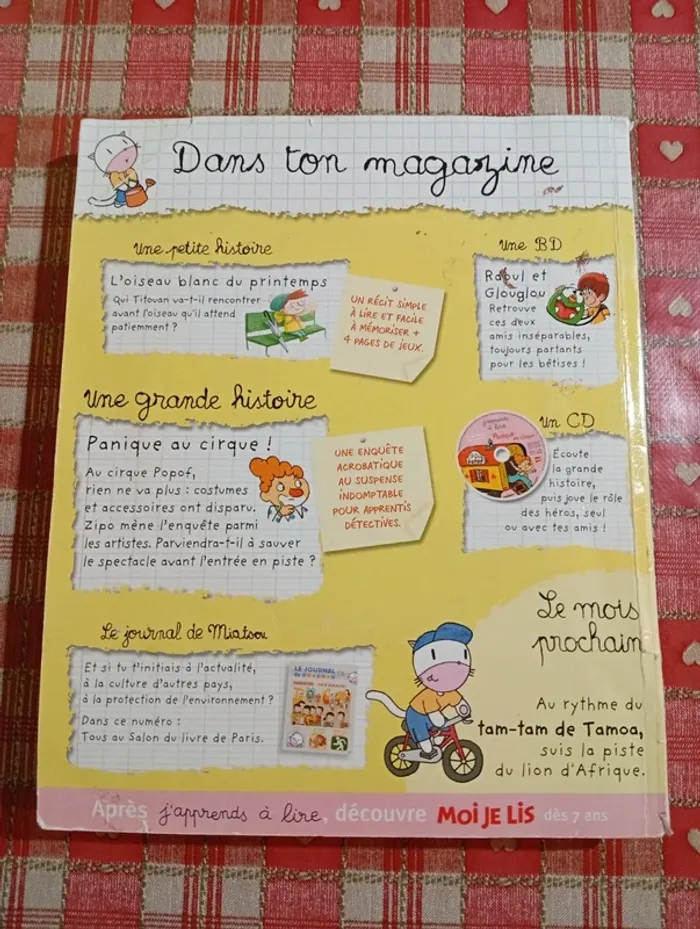 Dans ton magazine
Une petite histoire
L'oiseau blanc du printemps
Qui Titovan va-t-il rencontrer
avant l'oiseau qu'il attend
patiemment ?
UN RÉCIT SIMPLE
À LIRE ET FACILE
À MÉMORISER +
4 PAGES DE JEUX.
Une BD
Raoul et
Glouglou
Retrouve
ces deux
amis inséparables,
toujours partants
pour les bêtises !
Une grande histoire
Panique au cirque !
Au cirque Popof,
rien ne va plus : costumes
et accessoires ont disparu.
Zipo mène l'enquête parmi
les artistes. Parviendra-t-il à sauver
le spectacle avant l'entrée en piste ?
UNE ENQUÊTE
ACROBATIQUE
AU SUSPENSE
INDOMPTABLE
POUR APPRENTIS
DÉTECTIVES.
Un CD
Écoute
la grande
histoire,
puis joue le rôle
des héros, seul
ou avec tes amis !
Le journal de Miatsou
Et si tu t'initiais à l'actualité,
à la culture d'autres pays,
à la protection de l'environnement ?
Dans ce numéro :
Tous au Salon du livre de Paris.
LE JOURNAL
Le mois
prochain
Au rythme du
tam-tam de Tamoa,
suis la piste
du lion d'Afrique.
Après j'apprends à lire, découvre MOI JE LIS dès 7 ans